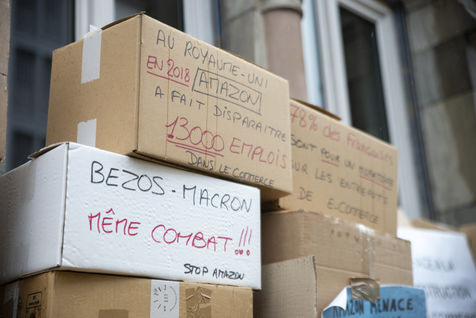 AU ROYAUME-UNI
EN 2018 AMAZON
A FAIT DISPARAITRE
13000 EMPLOIS
DANS LE COMMERCE
78% des FRANÇAIS
SONT POUR UN MORATOIRE
SUR LES ENTREPÔTS
DE E-COMMERCE
BEZOS-MACRON
MÊME COMBAT!!!
STOP AMAZON
AMAZON MENACE